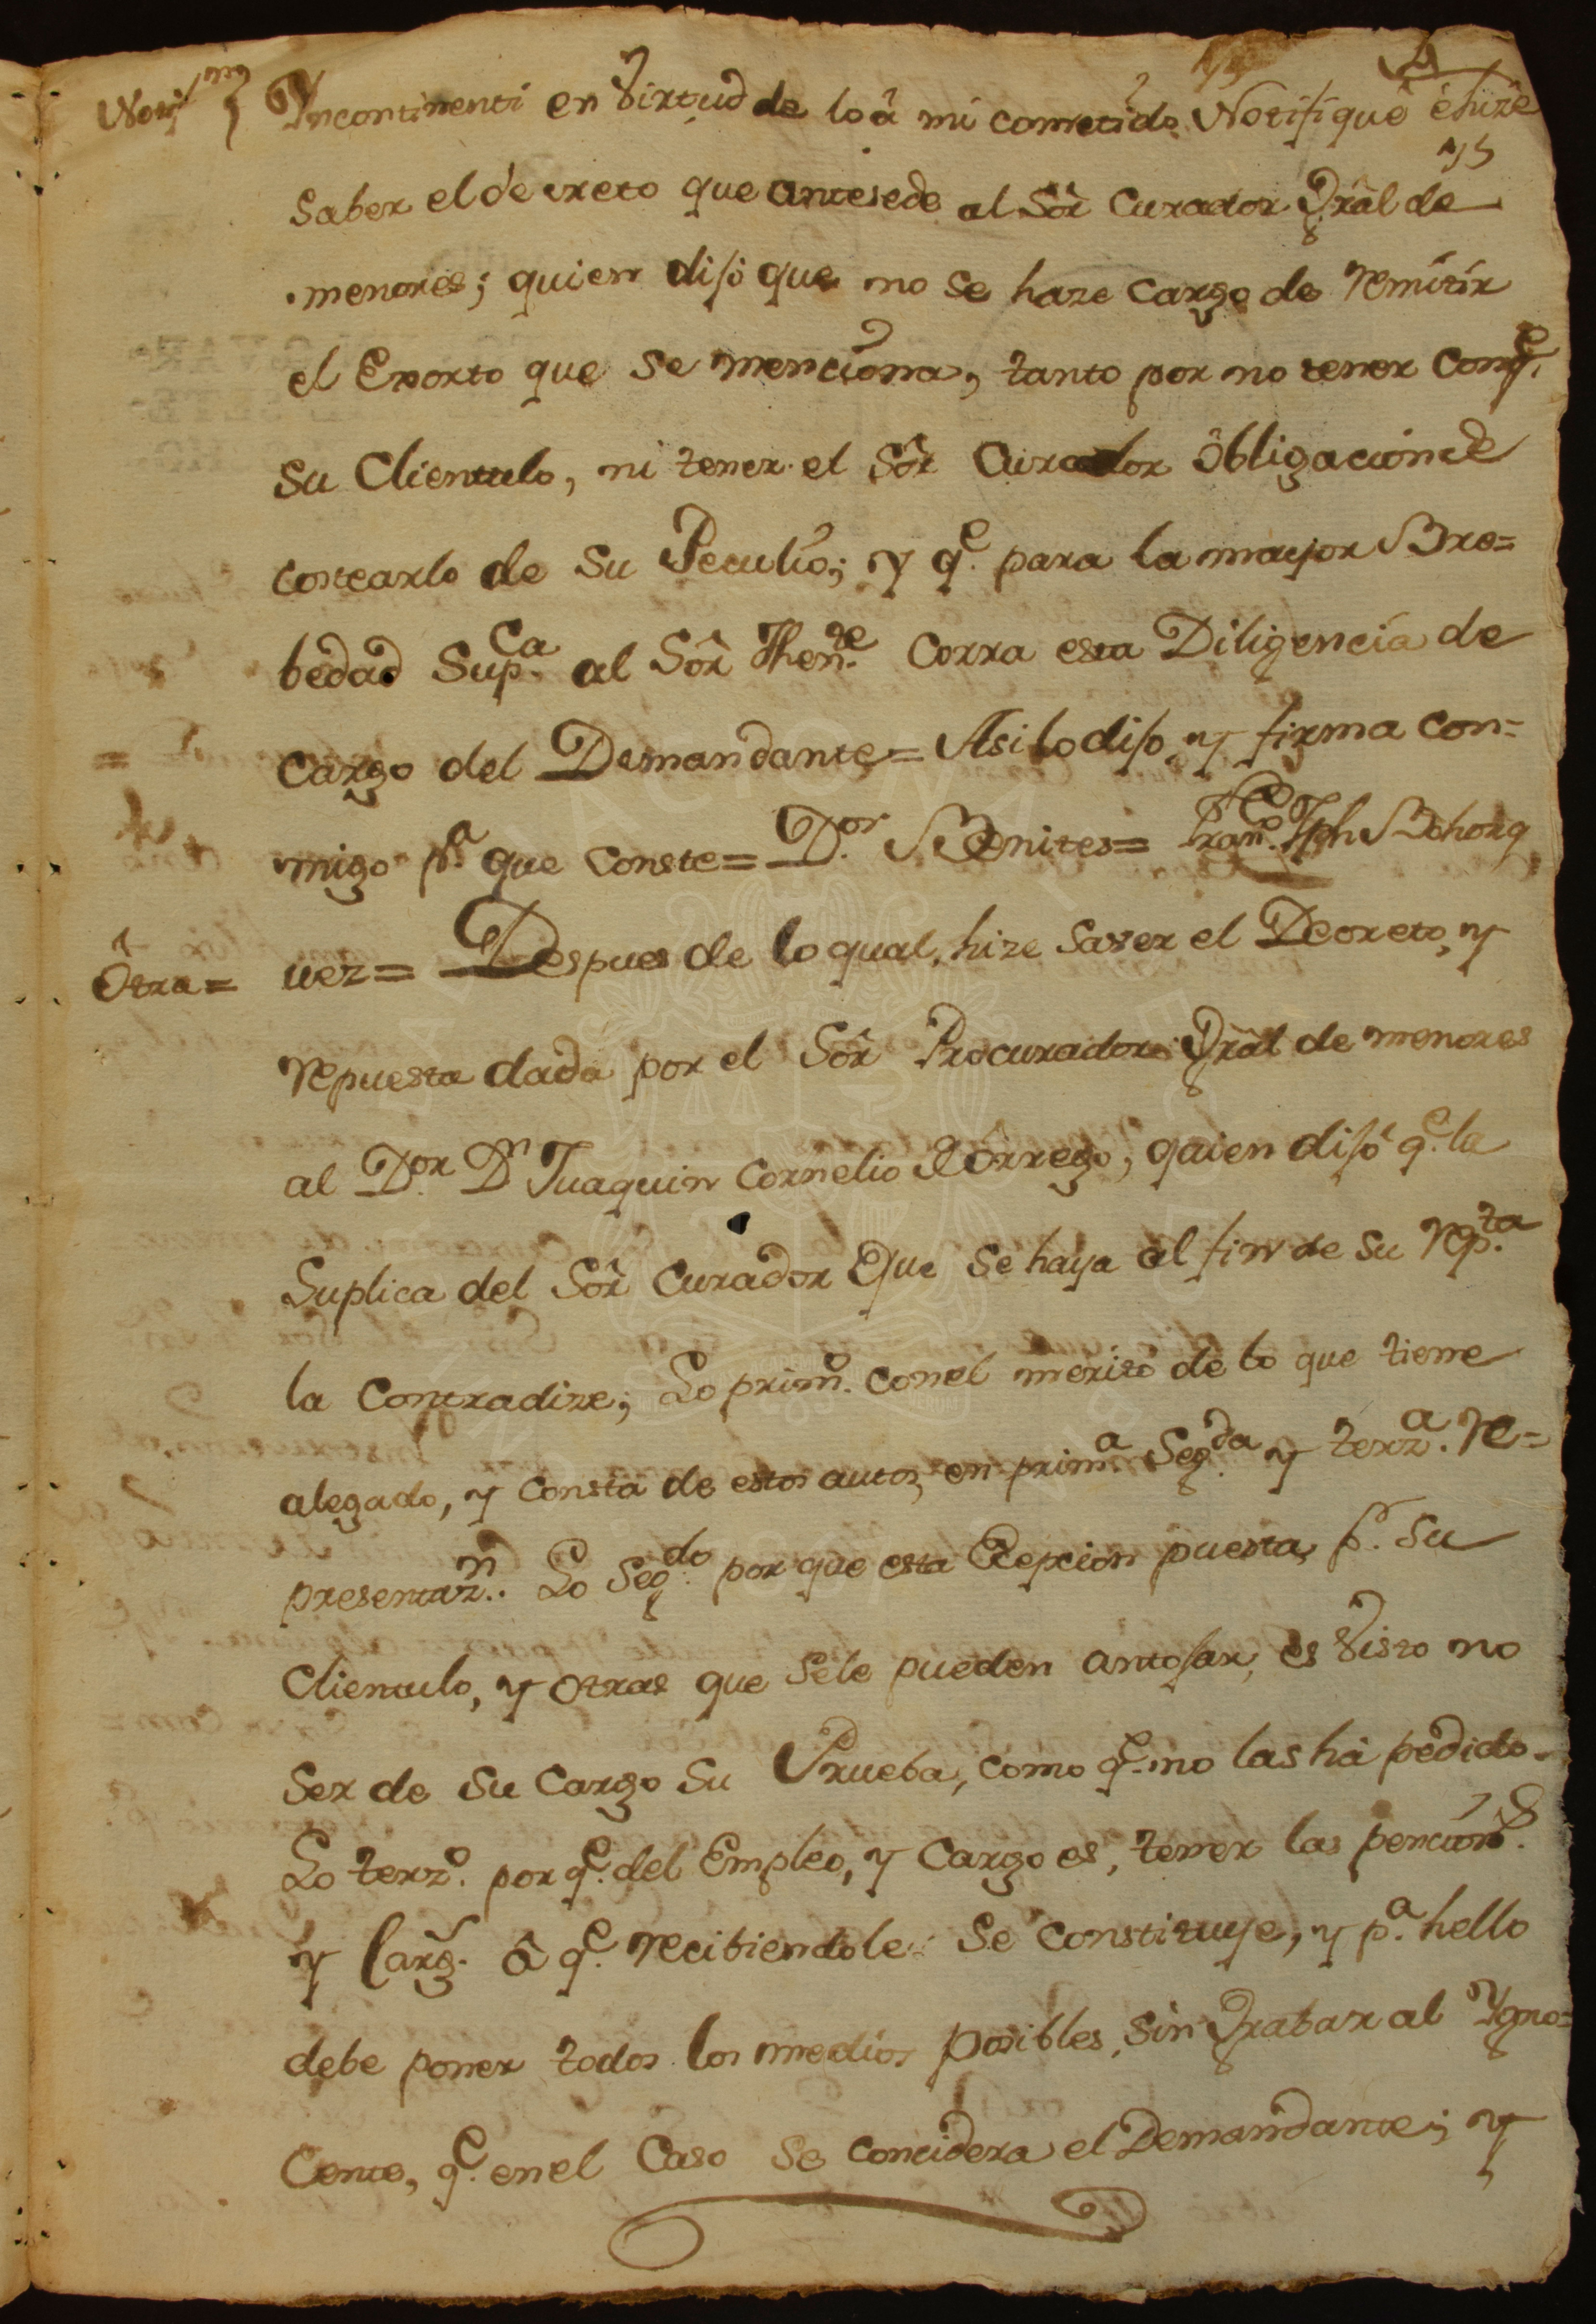 75
Incontinenti en Virtud de lo â mi cometido Notifiquê ê hize
75
Saber el decreto que antesede al Sôr Curador Grâl de
menores; quien dijo que no se haze cargo de remitir
el Exorto que se menciona, tanto por no tener con q.e
su Clientulo, ni tener el Sôr Curador Obligacion de
costearlo de su Peculio; y q.e para la mayor Bre=
bedad Sup.ca al Sôr Then.te Corra esta Diligencia de
cargo del Demandante= Asi lo dijo, y firma con=
migo p.a que Conste= D.or Benites= Fran.co Jph Bohorq
Otra= uez= Despues de lo qual, hize saver el Decreto, y
repuesta dada por el Sôr Procurador Grâl de menores
al D.or D.n Juaquin Cornelio Borrego, quien dijo q.e la
Suplica del Sôr Curador Que se haya al fin de su rep.ta
la Contradize; Lo prim.o con el merito de lo que tiene
alegado, y Consta de estos autos, en prim.a Seg.da y terz.a re=
presentaz.n. Lo Seg.do por que esta Excepcion puesta p.r su
Clientulo, y otras que se le pueden antojar, es Visto no
ser de su Cargo su Prueba, como q.e no las hà pedido.
Lo terz.o por q.e del Empleo, y Cargo es, tener las pencion.s
y Carg.s â q.e recibiendole se Constituye, y p.a hello
debe poner todos los medios posibles, sin Grabar al Ygno=
Cente, q.e en el Caso se Concidera el Demandante; y